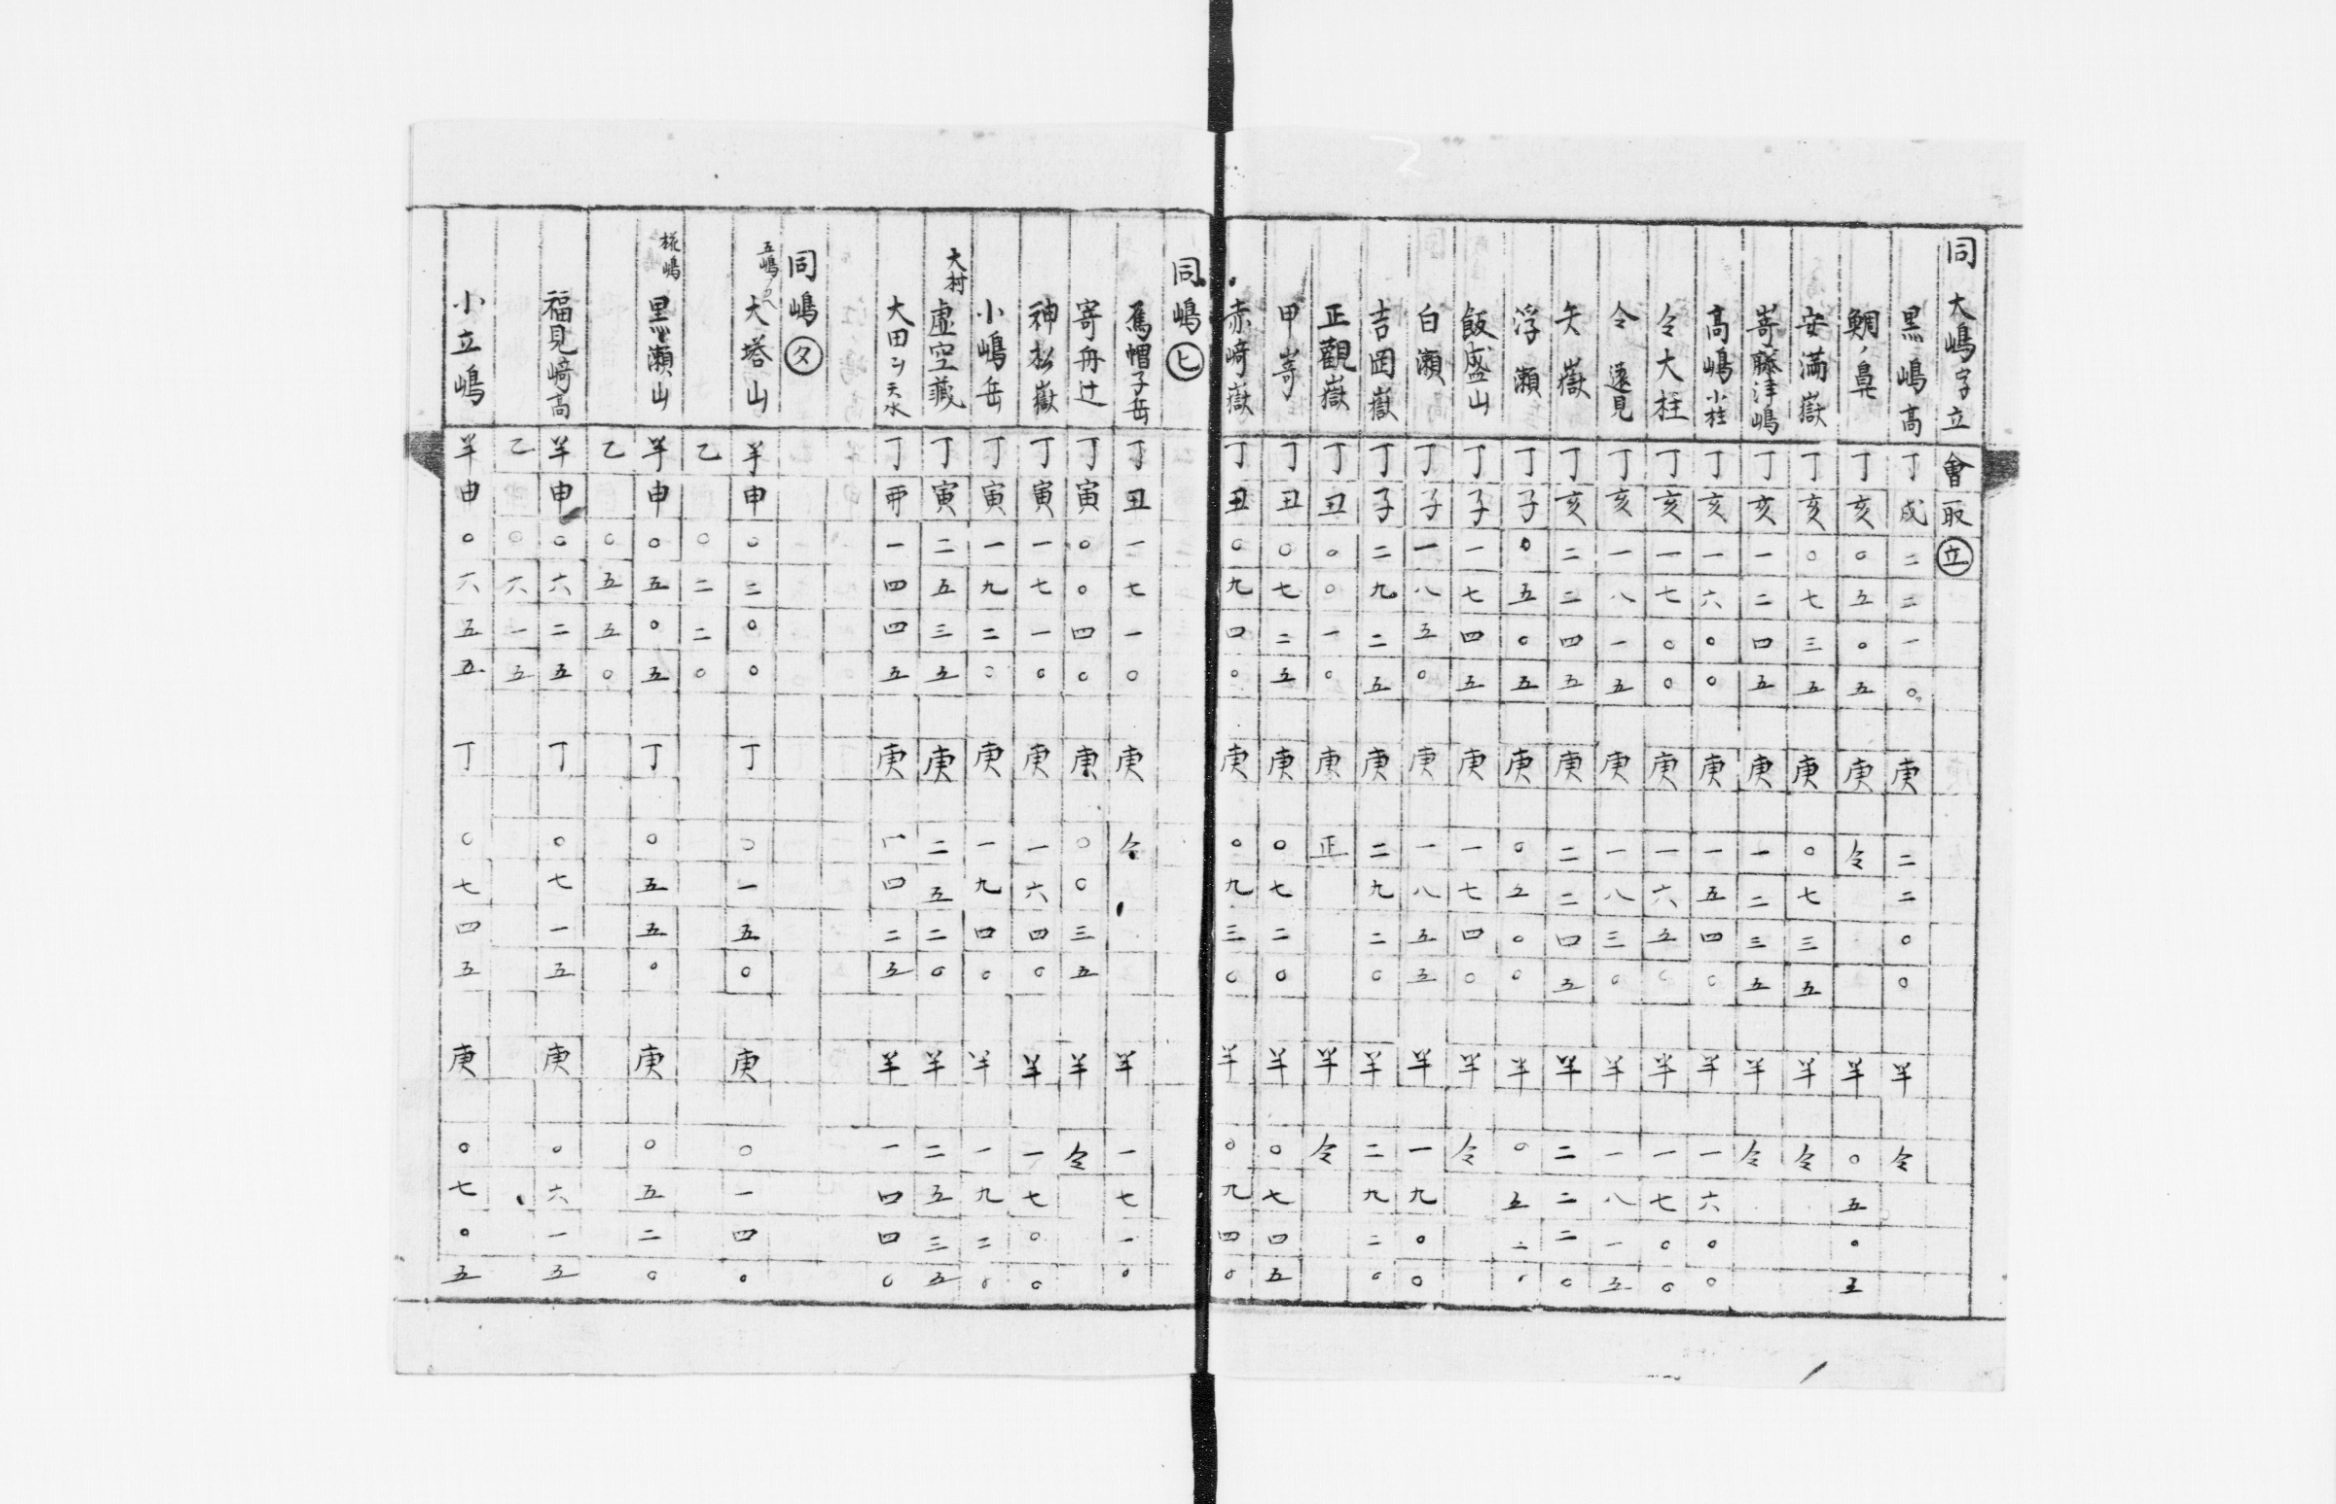 同 大嶋字立 會取 立
黒嶋高 丁戌二二一〇 庚二二〇〇 羊 仝
鯛ノ鼻 丁亥〇五〇五 庚 仝 羊〇五〇五
安満嶽 丁亥〇七三五 庚〇七三五 羊 仝
嵜藤津嶋 丁亥一二四五 庚一二三五 羊 仝
高嶋小柱 丁亥一六〇〇 庚一五四〇 羊一六〇〇
仝大柱 丁亥一七〇〇 庚一六五〇 羊一七〇〇
仝 遠見 丁亥一八一五 庚一八三〇 羊一八一五
矢嶽 丁亥二二四五 庚二二四五 羊二二二〇
浮瀬 丁子〇五〇五 庚〇五〇〇 羊〇五二〇
飯盛山 丁子一七四五 庚一七四〇 羊 仝
白瀬 丁子一八五〇 庚一八五五 羊一九〇〇
吉岡嶽 丁子二九二五 庚二九二〇 羊二九二〇
正觀嶽 丁丑〇〇一〇 庚 正 羊 仝
甲嵜 丁丑〇七二五 庚〇七二〇 羊〇七四五
赤﨑嶽 丁丑〇九四〇 庚〇九三〇 羊〇九四〇
同嶋 ヒ
馬帽子岳 丁丑一七一〇 庚 仝 羊一七一〇
寄舟辻 丁寅〇〇四〇 庚〇〇三五 羊 仝
神松嶽 丁寅一七一〇 庚一六四〇 羊一七〇〇
小嶋岳 丁寅一九二〇 庚一九四〇 羊一九二〇
大村 虚空蔵 丁寅二五三五 庚二五二〇 羊二五三五
大田 天水 丁 一四四五 庚一四二五 羊一四四〇
同嶋 タ
五嶋 大塔山 羊申〇二〇〇 丁〇一五〇 庚〇一四〇
乙 〇二二〇
椛嶋 黒瀬山 羊申〇五〇五 丁〇五五〇 庚〇五二〇
乙 〇五五〇
福見﨑高 羊申〇六二五 丁〇七一五 庚〇六一五
乙 〇六一五
小立嶋 羊申〇六五五 丁〇七四五 庚〇七〇五